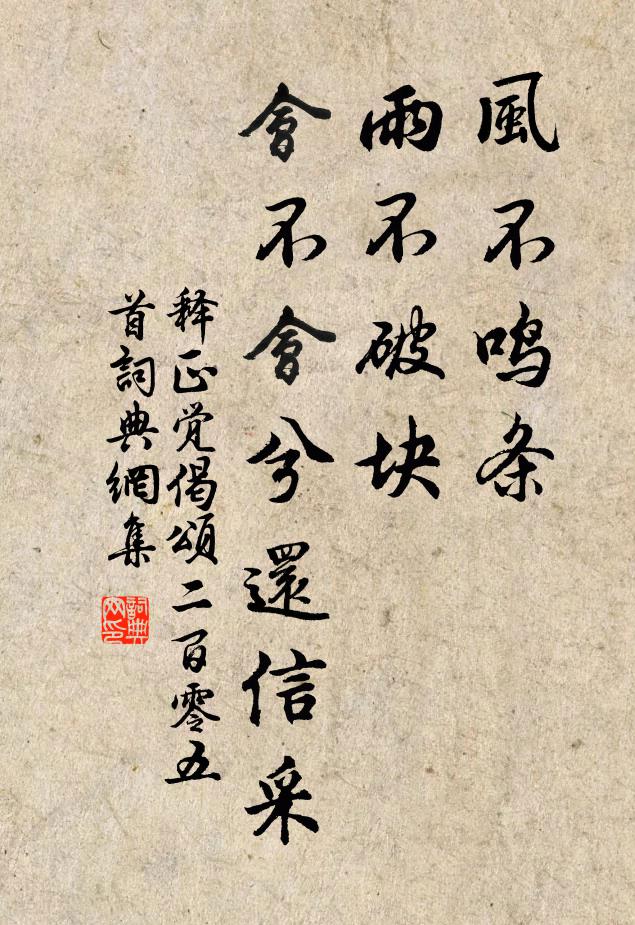 風不鸣条
雨不破块
會不會兮還信采
释正觉偈頌二百零五
首詞典網集
詞典
网印